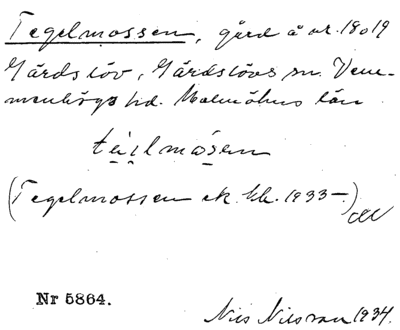 Tegelmossen, gård å nr. 18 o 19
Gärdslöv, Gärdslövs sn. Vem-
menhögs hd. Malmöhus län
teilmosen
(Tegelmossen ek. bl. 1933 –)
Nr 5864.
Nils Nilsson 1934.